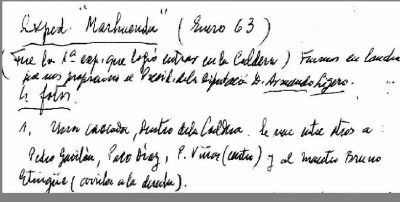 Exped. "Marhuenda" ( Enero 63 )
( Fue la 1ª exp. que logró entrar en la Caldera ) Fuimos en lancha
que nos proporcionó el Presid. de la Diputación D. Armando Ligero.
4 fotos.
1. Una cascada, dentro de la Caldera. Se ve entre otros a :
Pedro Gavilán, Paco Díaz, P. Viñas (centro) y al maestro Bruno
( arriba a la derecha ).